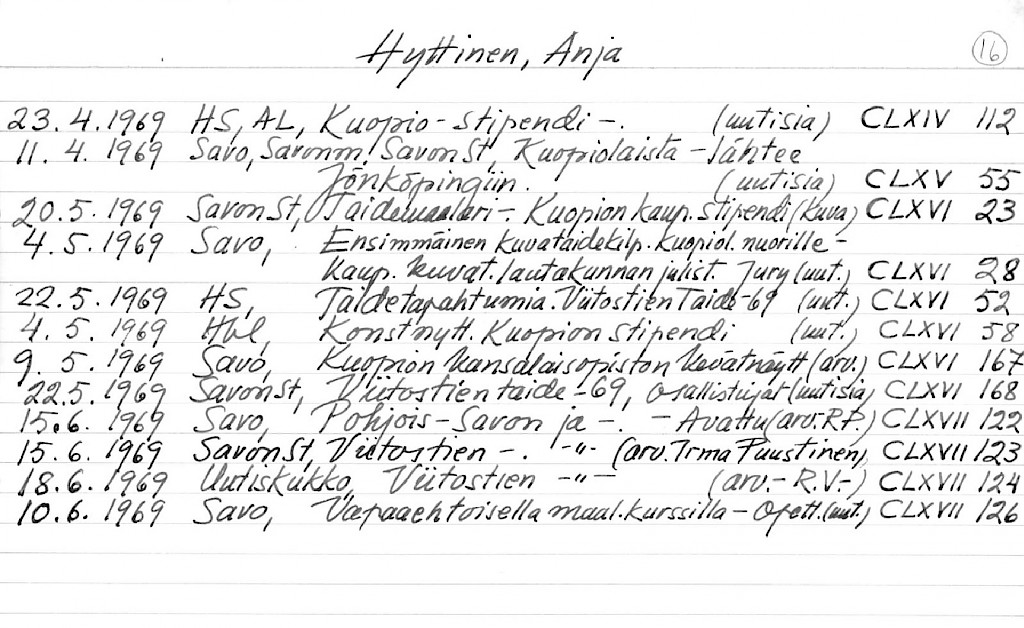 Hyttinen, Anja 16
23. 4. 1969 HS, AL, Kuopio-stipendi -. (uutisia) CLXIV 112
11. 4. 1969 Savo, Savonm. SavonSt, Kuopiolaista - lähtee
Jönköpingiin. (uutisia) CLXV 55
20. 5. 1969 SavonSt, Taidemaalari -. Kuopion kaup. stipendi (kuva) CLXVI 23
4. 5. 1969 Savo, Ensimmäinen kuvataidekilp. kuopiol. nuorille -
Kaup. kuvat. lautakunnan julist. Jury (uut.) CLXVI 28
22. 5. 1969 HS, Taidetapahtumia. Viitostien Taide-69 (uut.) CLXVI 52
4. 5. 1969 Hbl, Konstnytt. Kuopion stipendi (uut.) CLXVI 58
9. 5. 1969 Savo, Kuopion kansalaisopiston kevätnäytt (arv.) CLXVI 167
22.5. 1969 SavonSt, Viitostien taide -69, osallistujat (uutisia) CLXVI 168
15. 6. 1969 Savo, Pohjois-Savon ja -. - Avattu (arv. R.P.) CLXVII 122
15. 6. 1969 SavonSt, Viitostien -. -"- (arv. Irma Puustinen) CLXVII 123
18. 6. 1969 Uutiskukko, Viitostien -"- (arv.- R.V-) CLXVII 124
10. 6. 1969 Savo, Vapaaehtoisella maal.kurssilla - Opett. (uut.) CLXVII 126